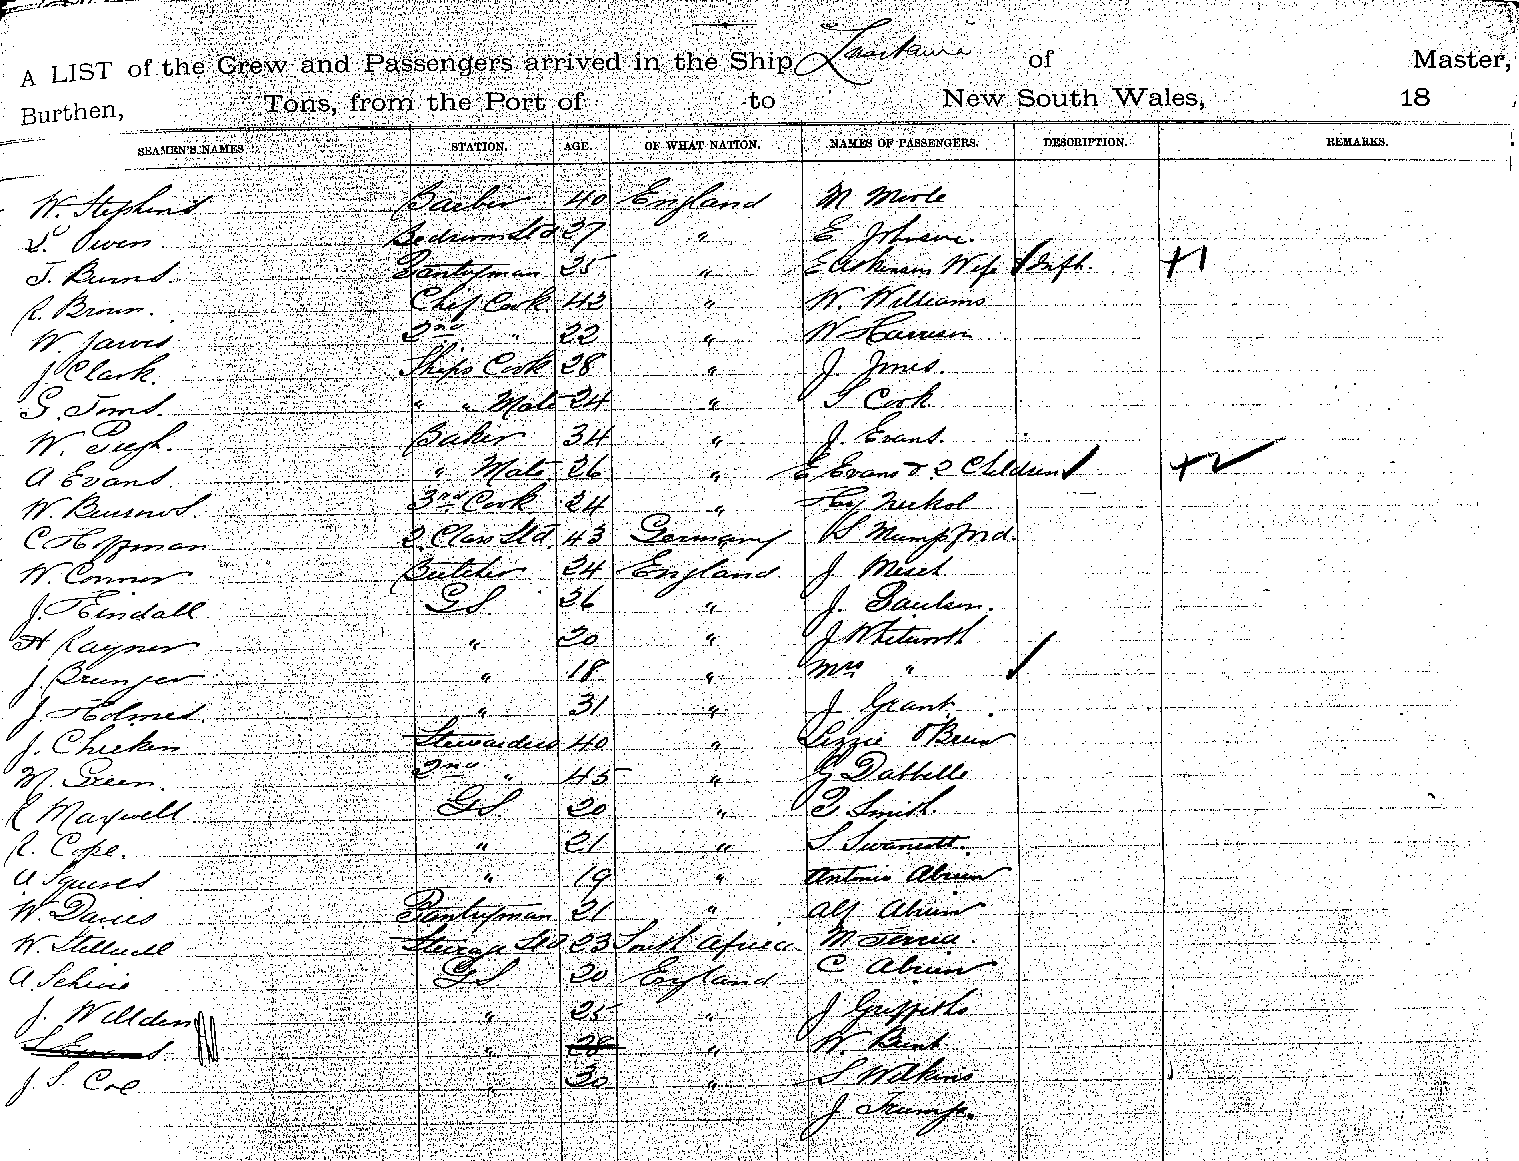 A LIST of the Crew and Passengers arrived in the Ship of Master,
Burthen, Tons, from the Port of to New South Wales, 18
SEAMEN'S NAMES STATION. AGE. OF WHAT NATION. NAMES OF PASSENGERS. DESCRIPTION. REMARKS.
W. Stephens Barber 40 England M
Owen Bedroom Std 27 " E Johnson.
J. Burns Pantryman 25 " E Atkinson Wife Inft. +1
R. Brown. Chef Cook 42 " W. Williams
W. Jarvis 2nd " 22 " W Harrison
J. Clark. Ships Cook 28 " J. Jones.
G. Toms. " " Mate 24 " Cook
W. Pugh. Baker 34 " J. Evans.
A Evans " Mate 26 " E Evans & 2 Children +2
W. Burrows. 3rd Cook 24 " Hy
C Hoffman 2 Class Std. 43 Germany Mumpford.
W. Connor Butcher 24 England J
J. Kindall GS 26 " J. Paulsen.
H Rayner " 20 " J Whitworth
J. Brunger " 18 " Mrs "
J. Holmes. " 31 " J Grant.
J. Chicken Stewardess 40 " Lizzie O'Brien
M. Green. 2nd " 45 " G Dabbelle
R Maxwell GS. 20 " Smith.
R. Cope. " 21 " S
A Squires " 19 " Antonio Abrien
W. Davies Pantryman 21 " Alf Abrien
W. Stillwell Steerage Std 23 South Africa M
A. GS 20 England C Abrien
J. Willden " 25 " J Griffiths
S Evans. " 28 " W.
J. S. Coe " 30 " S Wilkins
J Trump.